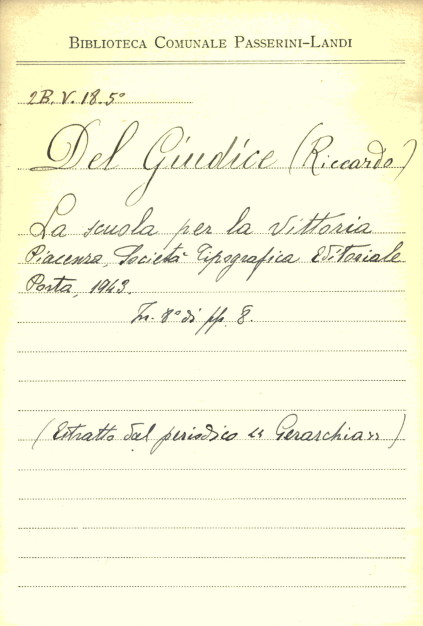 BIBLIOTECA COMUNALE PASSERINI-LANDI
2B. V. 18. 5°
Del Giudice (Riccardo)
La scuola per la vittoria
Piacenza, Società Tipografica Editoriale
Porta, 1943.
In. 8° di pp. 8.
(Estratto dal periodico "Gerarchia")